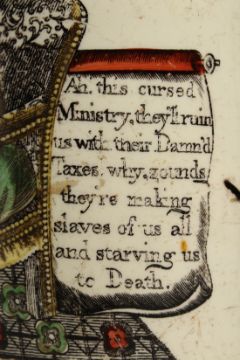 Ah, this cursed
Ministry, they'll ruin
us with their Damn'd
Taxes. why, zounds,
they're making
slaves of us all
and starving us
to Death.